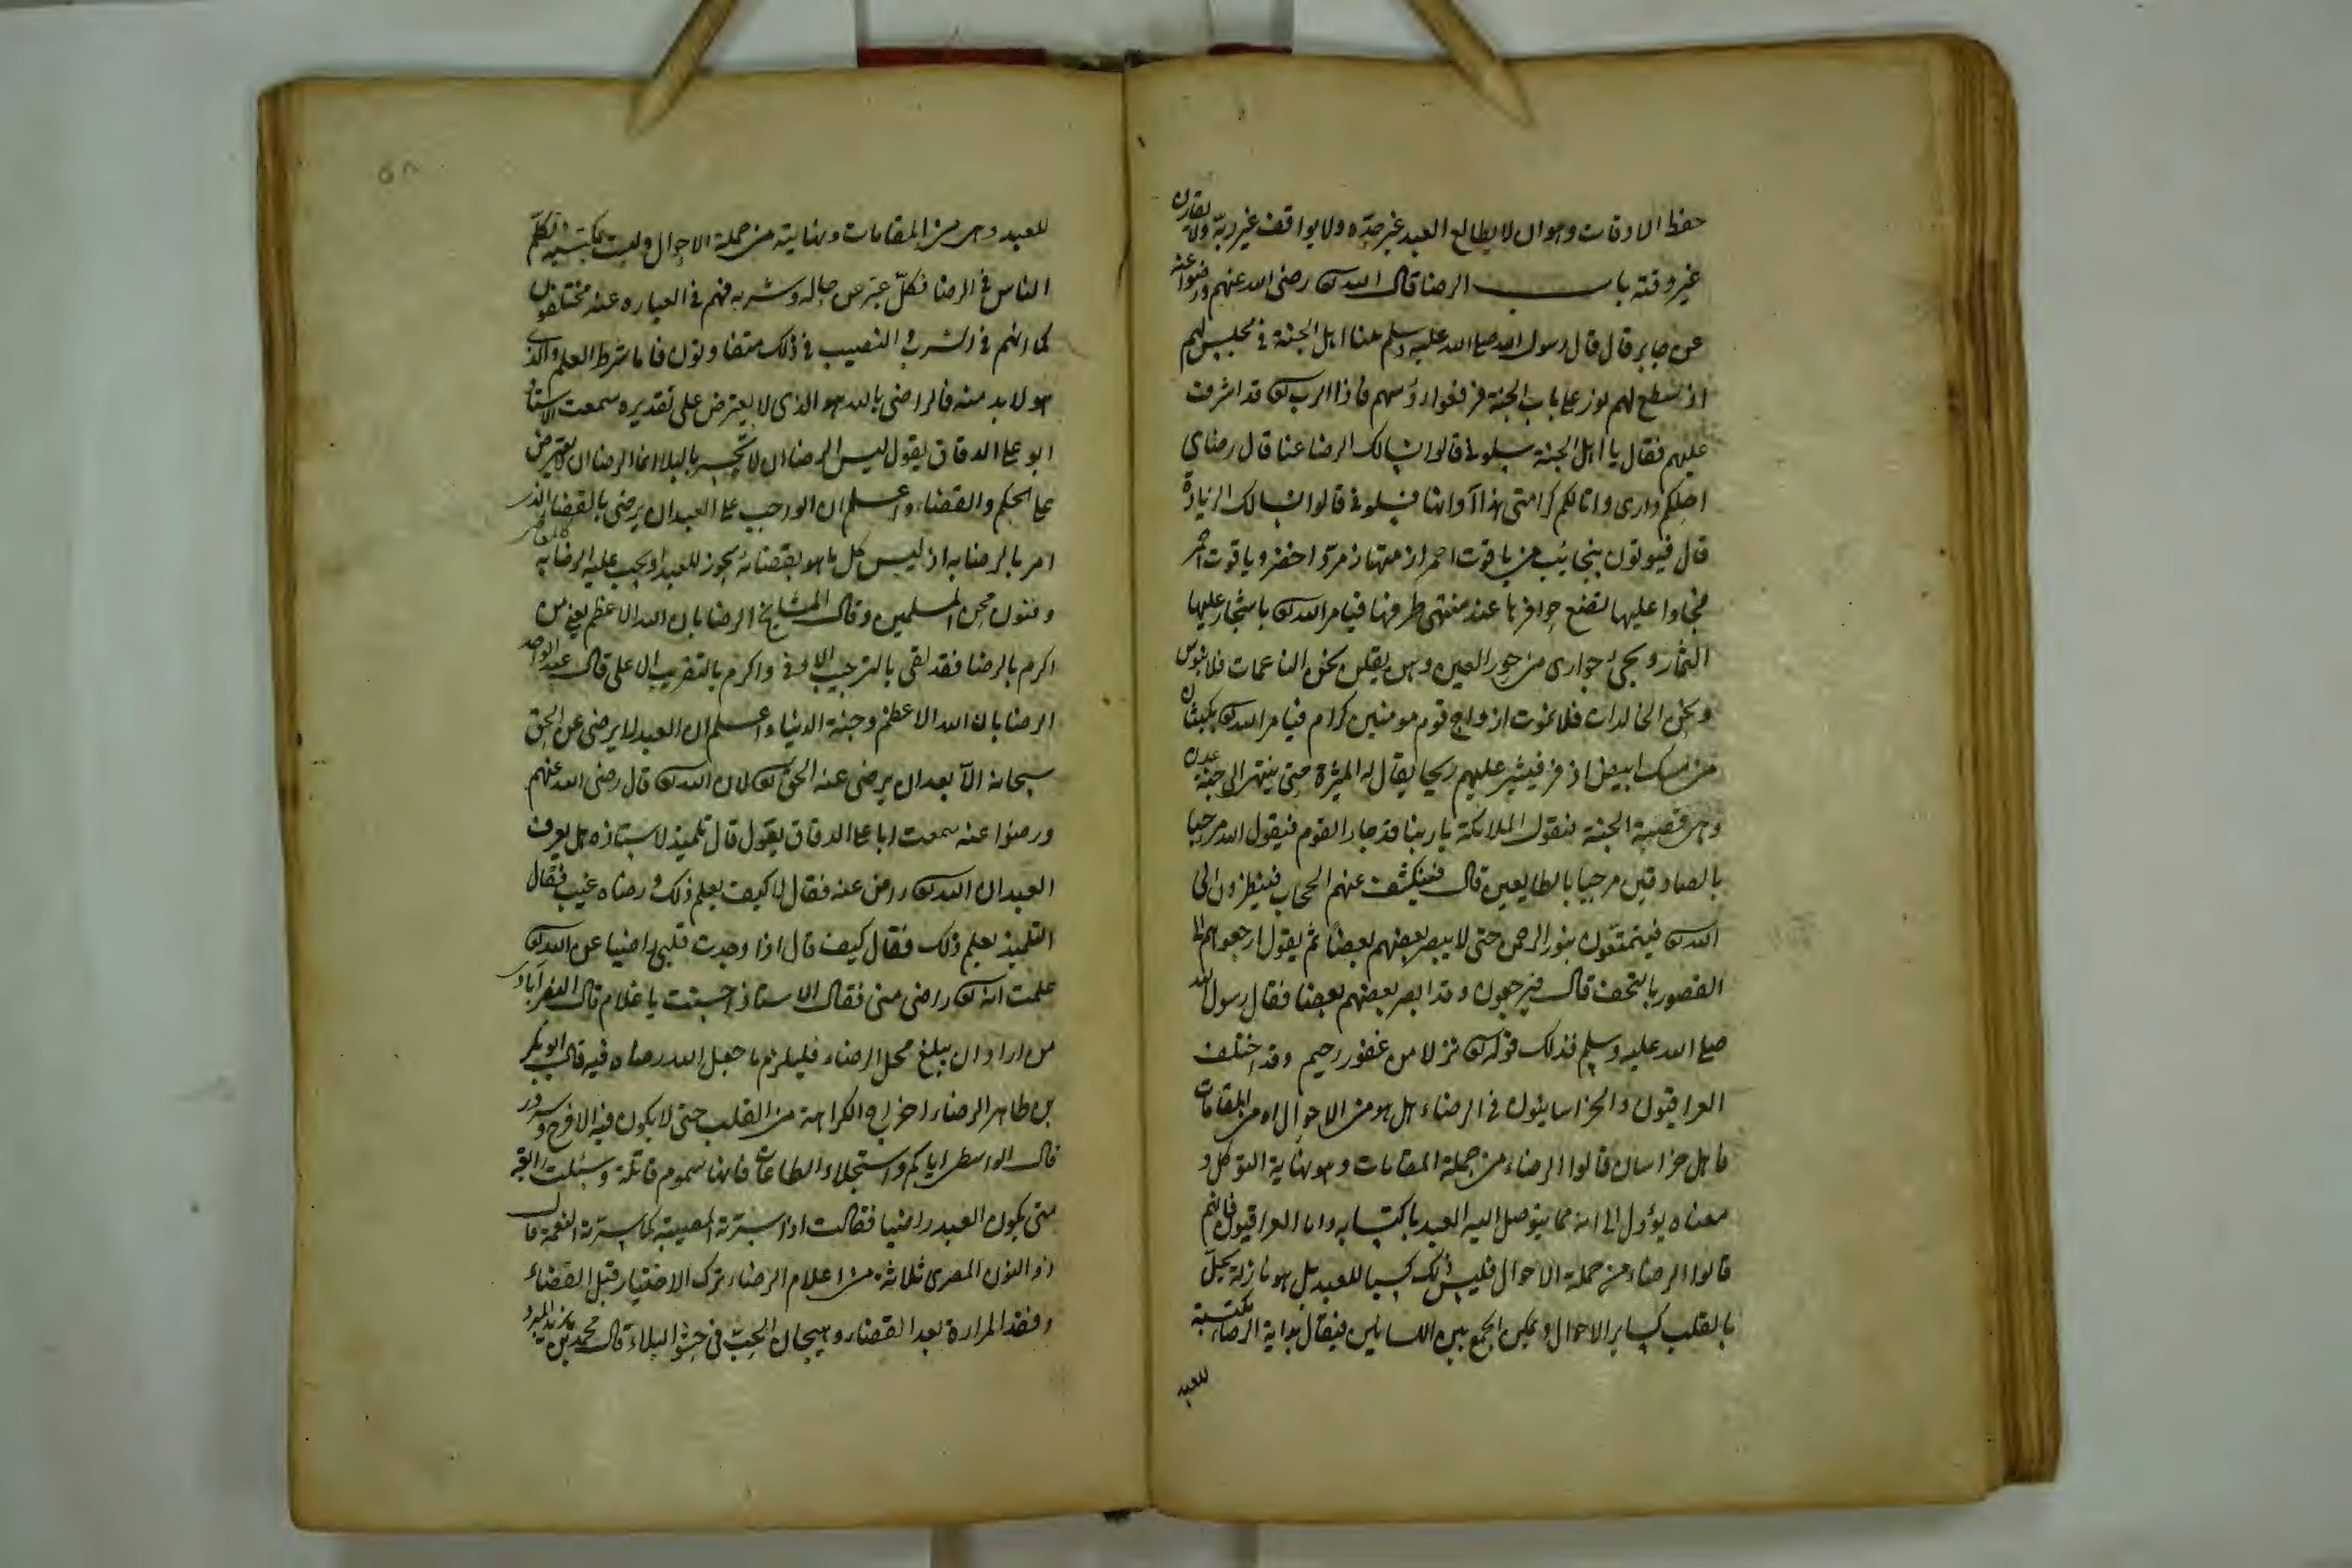 حفظ الاوقات وهو ان لا يطالع العبد غير حدّه ولا يوافق غير ربّه ولا يقارن
غير وقته باب الرضا قال الله تع رضى الله عنهم ورضوا عنه
عن جابر قال قال رسول الله صلى الله عليه وسلم بينا اهل الجنة في مجلس لهم
اذ سطع لهم نور على باب الجنة فرفعوا رؤسهم فاذا الرب تع قد اشرف
عليهم فقال يا اهل الجنة سلونى قالوا نسالك الرضا عنا قال رضاى
احلكم دارى وانالكم كرامتى هذا اوانها فسلونى قالوا نسالك الزيادة
قال فيوتون بنجائب من ياقوت احمر ازمتها زمرّد اخضر وياقوت احمر
فجاوا عليها تضع حوافرها عند منتهى طرفها فيامر الله تع باشجار عليها
الثمار وتجئ جوارى من حور العين وهن يقلن نحن الناعمات فلا نبوس
ونحن الخالدات فلا نموت ازواج قوم مومنين كرام فيامر الله تع بكثبان
من مسك ابيض اذفر فيثير عليهم ريحا يقال له المثيرة حتى ينتهى الى جنة عدن
وهى قصبة الجنة فتقول الملائكة يا ربنا قد جاء القوم فيقول الله مرحبا
بالصادقين مرحبا بالطايعين قال فيكشف عنهم الحجاب فينظرون الى
الله تع فيتمتعون بنور الرحمن حتى لا يبصر بعضهم بعضا ثم يقول ارجعوهم الى
القصور بالتحف قال فيرجعون وقد ابصر بعضهم بعضا فقال رسول الله
صلى الله عليه وسلم فذلك قوله تع نزلا من غفور رحيم وقد اختلف
العراقيون والخراسانيون في الرضاء هل هو من الاحوال او من المقامات
فاهل خراسان قالوا الرضاء من جملة المقامات وهو نهاية التوكل و
معناه يؤول الى انه مما يتوصل اليه العبد باكتسابه واما العراقيون فانهم
قالوا الرضاء من جملة الاحوال فليس ذلك كسبا للعبد بل هو نازلة تحلّ
بالقلب كساير الاحوال ويمكن الجمع بين اللسانين فيقال بداية الرضاء مكتسبة
للعبد
للعبد وهى من المقامات ونهايته من جملة الاحوال وليست بمكتسبة تكلّم
الناس في الرضا فكلّ عبّر عن حاله وشربه فهم في العبارة عنه مختلفون
كما انهم في الشرب والنصيب في ذلك متفاوتون فاما شرط العلم والذى
هو لا بد منه فالراضى بالله هو الذى لا يعترض على تقديره سمعت الاستاذ
ابو على الدقاق يقول ليس الرضا ان لا تحس بالبلا انما الرضا ان لا تعترض
على الحكم والقضاء واعلم ان الواجب على العبد ان يرضى بالقضا الذى
امر بالرضا به اذ ليس كل ما هو بقضائه يجوز للعبد او يجب عليه الرضا به كالمعاصى
وفنون محن المسلمين وقال المشايخ الرضا باب الله الاعظم يعنى من
اكرم بالرضا فقد لقى بالترحيب الاوفى واكرم بالتقريب الاعلى قال عبد الواحد
الرضا باب الله الاعظم وجنة الدنيا واعلم ان العبد لا يرضى عن الحق
سبحانه الا بعد ان يرضى عنه الحق تع لان الله تع قال رضى الله عنهم
ورضوا عنه سمعت ابا على الدقاق يقول قال تلميذ لاستاذه هل يعرف
العبد ان الله تع راض عنه فقال لا كيف يعلم ذلك ورضاه غيب فقال
التلميذ يعلم ذلك فقال كيف قال اذا وجدت قلبى راضيا عن الله تع
علمت انه تع راضى منى فقال الاستاذ احسنت يا غلام قال النصرآبادى
من اراد ان يبلغ محل الرضاء فليلزم ما جعل الله رضاه فيه قال ابو بكر
بن طاهر الرضاء اخراج الكراهة من القلب حتى لا يكون فيه الا فرح وسرور
قال الواسطى اياكم واستحلاء الطاعات فانها سموم قاتلة وسئلت رابعة
متى يكون العبد راضيا فقالت اذا سرته المصيبة كما سرته النعمة قال
ذو النون المصرى ثلاثة من اعلام الرضاء ترك الاختيار قبل القضاء
وفقد المرارة بعد القضاء وهيجان الحبّ في حشو البلاء قال محمد بن يزيد المبرد